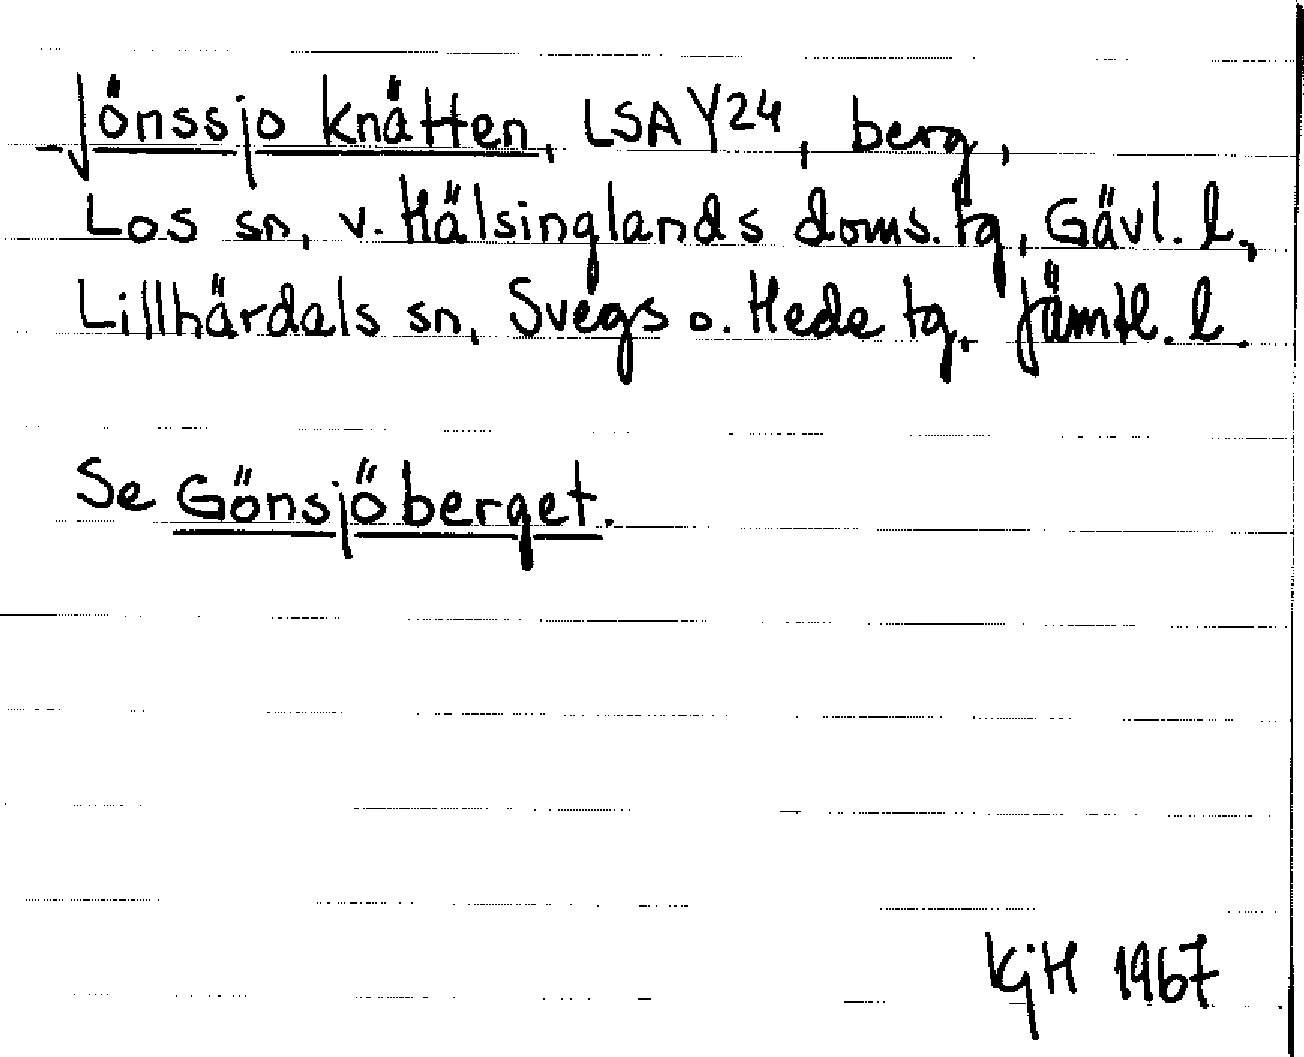 Jönssjo knätten, LSA Y24, berg,
Los sn, v. Hälsinglands doms. tg, Gävl. l,
Lillhärdals sn, Svegs o. Hede tg. Jämtl. l.
Se Gönsjöberget.
KjH 1967